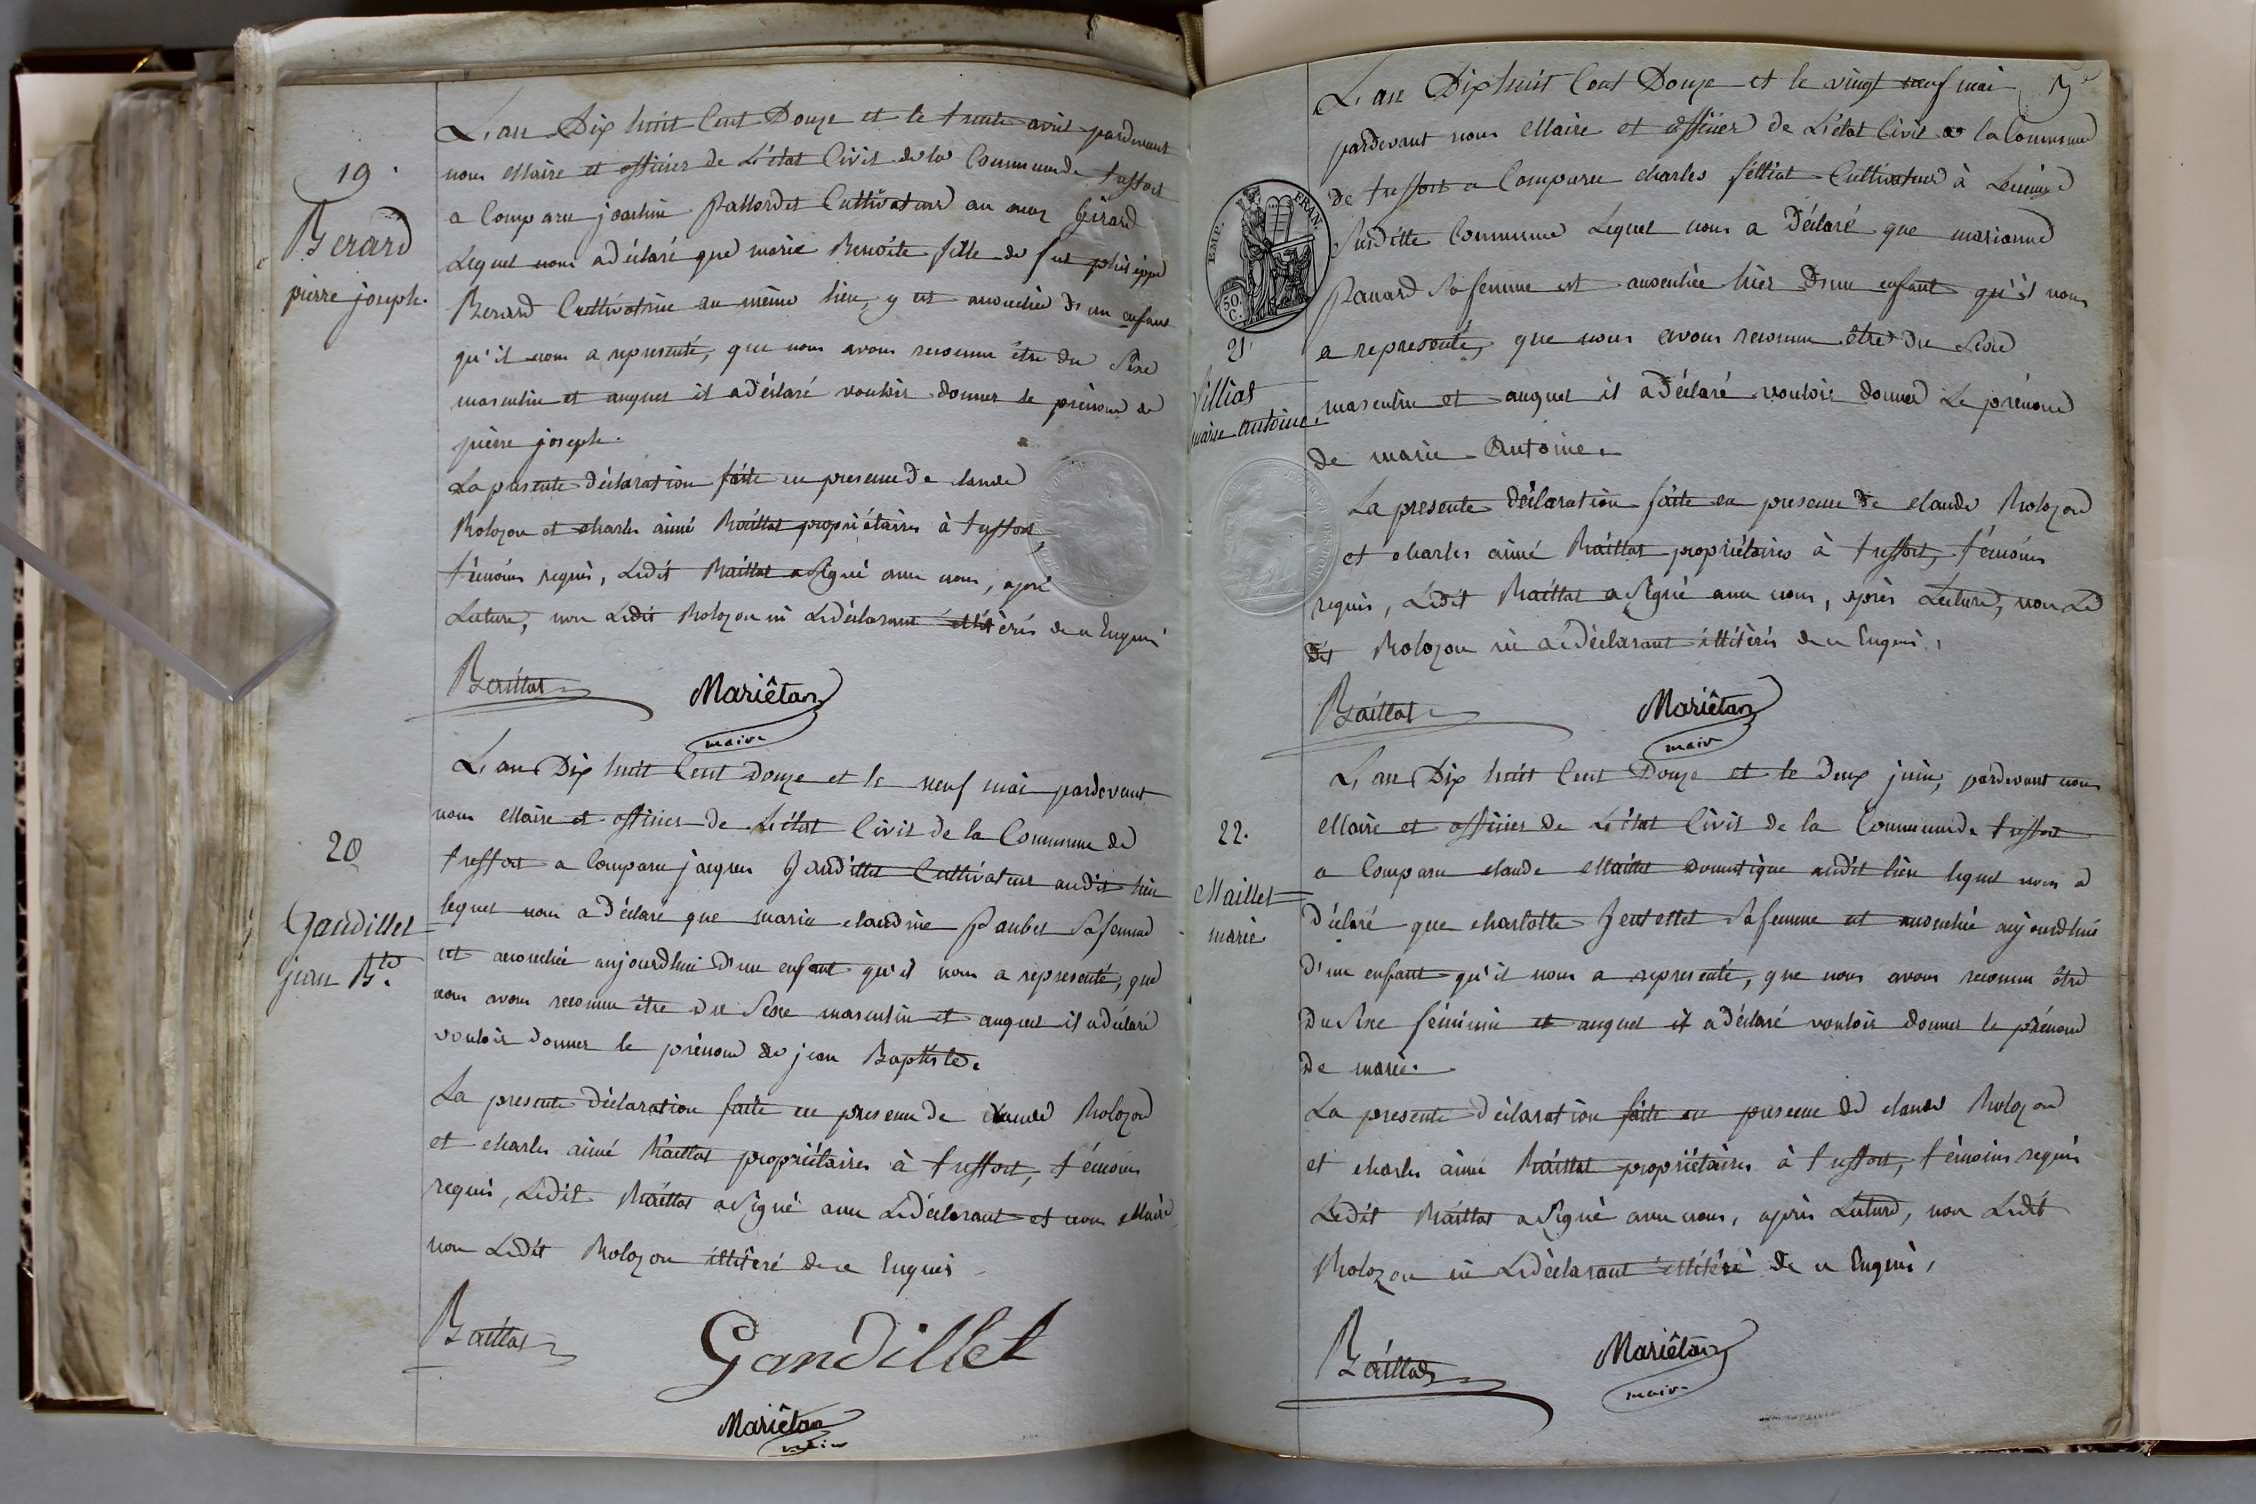 19.
Berard
pierre joseph.
L'an Dix huit Cent Douze et le trente avril pardevant
nous Maire et officier de L'état Civil de la Commune de treffort
a Comparu joachin Cultivateur au mas Girard
Lequel nous a déclaré que marie Benoite fille de feu philippe
Berard Cultivatrice au même lieu y est accouchée d'un enfant
qu'il nous a representé, que nous avons reconnu être du Sexe
masculin et auquel il a Déclaré vouloir donner le prénom de
pierre joseph.
La presente déclaration faite en presence De claude
Rolozon et charles aimé Baillat propriétaires à treffort,
témoins requis, Ledit Baillat a Signé avec nous, après
Lecture, non Ledit Rolozon ni Le déclarant illitérés de ce Enquis
Baillat
Mariêtan
maire
20
Gandillet
jean Bte.
L'an Dix huit Cent Douze et le neuf mai pardevant
nous Maire et officier de L'état Civil de la Commune de
treffort a Comparu jacques Gandillet Cultivateur audit lieu
lequel nous a Déclaré que marie claudine Paubel Sa femme
est accouchée aujourdhui D'un enfant qu'il nous a representé, que
nous avons reconnu être du Sexe masculin et auquel il a déclaré
vouloir donner le prénom de jean Baptiste.
La presente déclaration faite en presence de claude Rolozon
et charles aimé Baillat propriétaires à treffort, témoins
requis, Ledit Baillat a Signé avec Le déclarant et nous Maire
non Ledit Rolozon illitéré de ce Enquis
Baillat
Gandillet
Mariêtan
maire
L'an Dix huit Cent Douze et le vingt neuf mai
pardevant nous Maire et officier de L'état Civil de la Commune
de treffort a Comparu charles Cultivateur à
Susditte Commune Lequel nous a Déclaré que marianne
Panard Sa femme est accouchée hier D'un enfant qu'il nous
a representé, que nous avons reconnu être du Sexe
masculin et auquel il a Déclaré vouloir donner Le prénom
de marie Antoine.
EMP. FRAN.
50.
C.
21
marie antoine.
La presente déclaration faite en presence De claude Rolozon
et charles aimé Baillat propriétaires à treffort, témoins
requis, Ledit Baillat a Signé avec nous, après Lecture, non Le
dit Rolozon ni Le déclarant illitérés de ce Enquis,
Baillat
Mariêtan
maire
22.
Maillet
marie
L'an Dix huit Cent Douze et le Deux juin, pardevant nous
Maire et officier de L'état Civil de la Commune de treffort
a Comparu claude Maillet Domestique audit lieu lequel nous a
Déclaré que charlotte Sa femme est accouchée aujourdhui
D'un enfant qu'il nous a representé, que nous avons reconnu être
du Sexe féminin et auquel il a déclaré vouloir donner le prénom
De marie.
La presente déclaration faite en presence de claude Rolozon
et charles aimé Baillat propriétaires à treffort, témoins requis
Ledit Baillat a Signé avec nous, après Lecture, non Ledit
Rolozon ni Le déclarant illitéré de ce Enquis,
Baillat
Mariêtan
maire